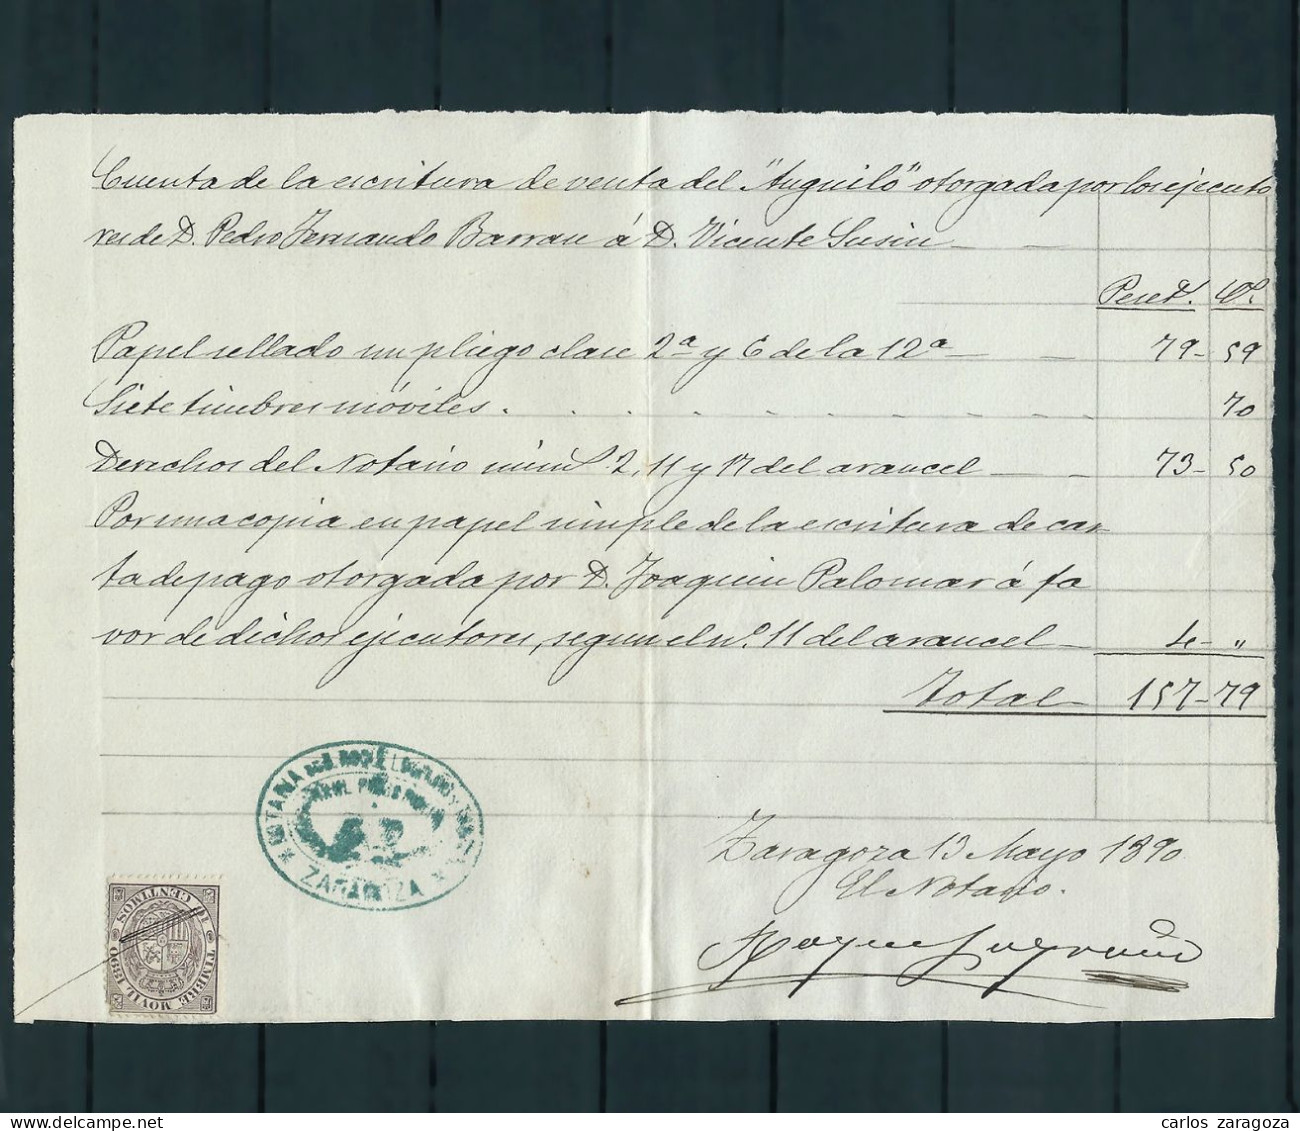 Cuenta de la escritura de venta del "Auguiló" otorgada por los ejecuto
res de D. Pedro Fernando Barrau á D. Vicente Susin
Peset.s C.s
Papel sellado un pliego clase 2ª y 6 de la 12ª 79-59
Siete timbres móviles. 70
Derechos del Notario núm.s 2, 11 y 17 del arancel 73-50
Por una copia en papel simple de la escritura de car
ta de pago otorgada por D. Joaquin Palomar á fa
vor de dichos ejecutores, segun el nº. 11 del arancel 4- "
Total 157-79
NOTARIA
ZARAGOZA
Zaragoza 13 Mayo 1890
El Notario.
10 CENTIMOS
TIMBRE MOVIL 1890
carlos zaragoza